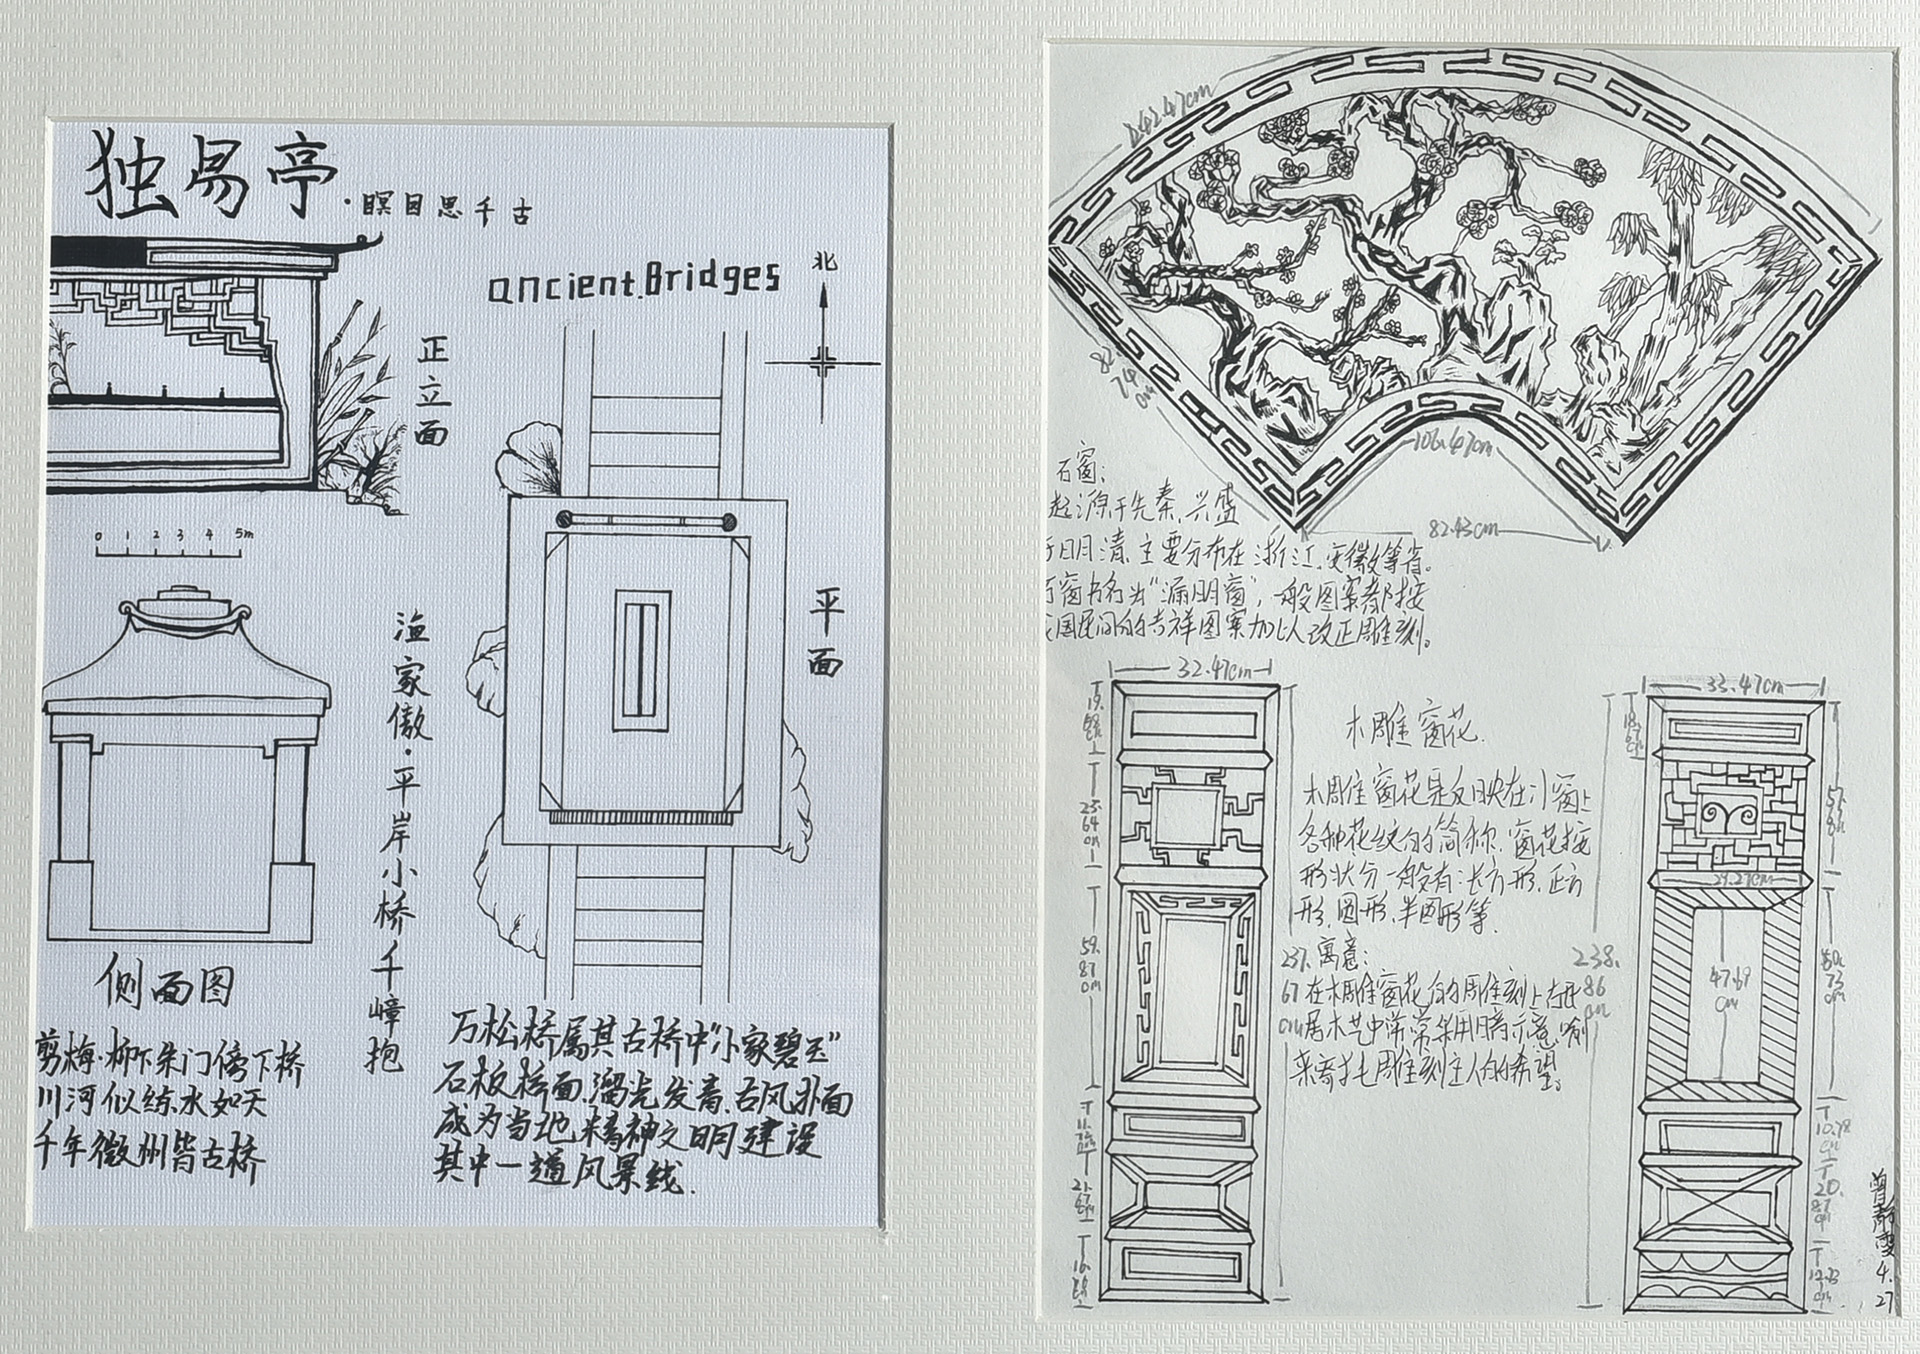 独易亭
·瞑目思千古
ancient.Bridges
北
正立面
0 1 2 3 4 5m
平面
渔家傲·平岸小桥千嶂抱
侧面图
剪梅·柳下朱门傍下桥
川河似练水如天
千年徽州皆古桥
万松桥属其古桥中"小家碧玉"
石板桥面.溜光发青.古风外面
成为当地精神文明建设
其中一道风景线.
106.47cm
82.43cm
石窗：
起源于先秦.兴盛
于明清.主要分布在浙江.安徽等省。
"漏明窗"，一般图案都按
国民间的吉祥图案加以改正雕刻。
32.47cm
木雕窗花.
木雕窗花是反映在门窗上
各种花纹的的简称.窗花按
形状分一般有：长方形.正方
形.圆形.半圆形等.
寓意：
在木雕窗花的雕刻上
居木艺中常常采用暗示意喻
来寄托雕刻主人的的希望。
25.
64cm
59.
87cm
237.
67
cm
33.47cm
29.27cm
47.67
cm
238.
86
cm
10.78
cm
20.
87
cm
4.
27